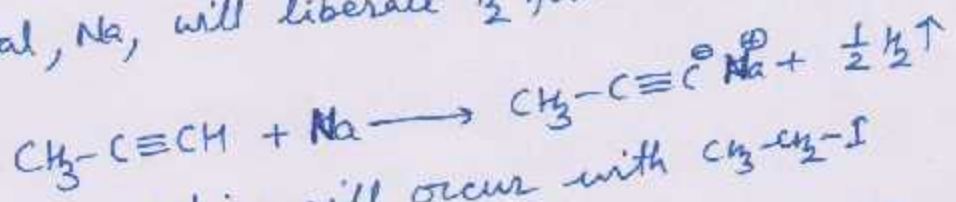 al, Na, will liberate 1/2
CH₃-C≡CH + Na ⟶ CH₃-C≡C⊖ Na⊕ + 1/2 H₂↑
will occur with CH₃-CH₂-I